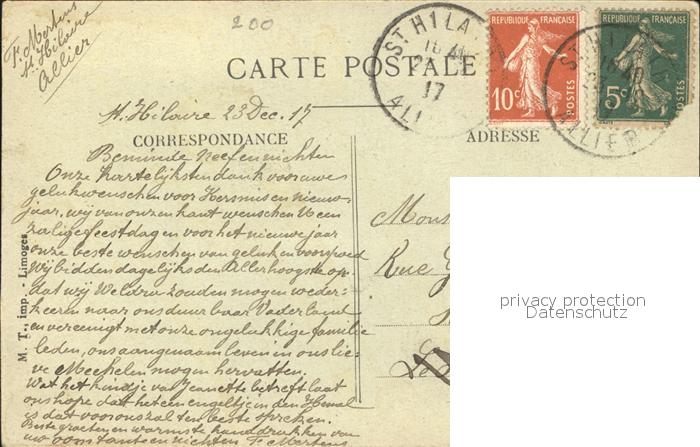 Fr Mertens
St. Hilaire
Allier
200
CARTE POSTALE
ST HILAI
16
17
ALLI
REPUBLIQUE FRANÇAISE
10c
POSTES
REPUBLIQUE FRANÇAISE
5c
POSTES
ST HILAI
ALLIER
St. Hilaire 23 Dec. 17
CORRESPONDANCE
ADRESSE
Beminde neef en nichten
Onze hartelijksten dank voor uwe
gelukwenschen voor Kersmis en nieuw-
jaar, wij van onzen kant wenschen U een
zalige feestdagen voor het nieuwe jaar
onze beste wenschen van geluk en voorspoed
Wij bidden dagelijks den Allerhoogste op-
dat wij Weldra zouden mogen weder-
keeren naar ons duurbaar Vaderland
en vereenigt met onze ongelukkige familie
leden, ons aangenaam leven in ons lie-
ve Mechelen mogen hervatten.
Wat het kindje van Jeanette betreft laat
ons hope dat het een engeltje in den Hemel
is dat voor ons zal ten beste spreken.
Beste groeten en warmste handdrukken van
uw oom tante en nichten Fr Mertens
M. T., imp. - Limoges
Mons
Rue
privacy protection
Datenschutz